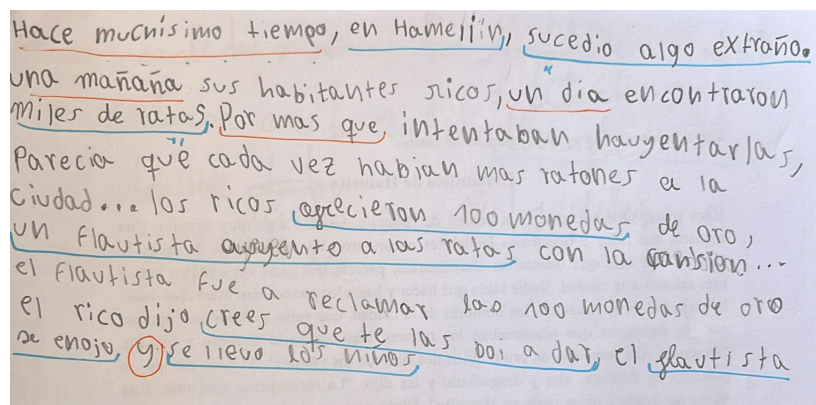 Hace mucnísimo tiempo, en Hamelìin, sucedio algo extraño.
una mañaña sus habitantes ricos, un dia encontraron
miles de ratas. Por mas que, intentaban hauyentarlas,
Parecia qué cada vez habian mas ratones a la
ciudad... los ricos ofrecieron 100 monedas de oro,
un flautista ayuyento a las ratas con la cansion...
el flautista fue a reclamar las 100 monedas de oro
el rico dijo crees que te las boi a dar, el flautista
se enojo y se llevo los niños,